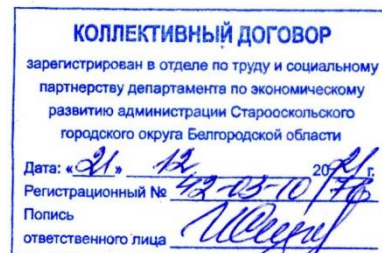 КОЛЛЕКТИВНЫЙ ДОГОВОР
зарегистрирован в отделе по труду и социальному
партнерству департамента по экономическому
развитию администрации Старооскольского
городского округа Белгородской области
Дата: «21» 12 2021 г.
Регистрационный № 42-03-10/76
Попись
ответственного лица